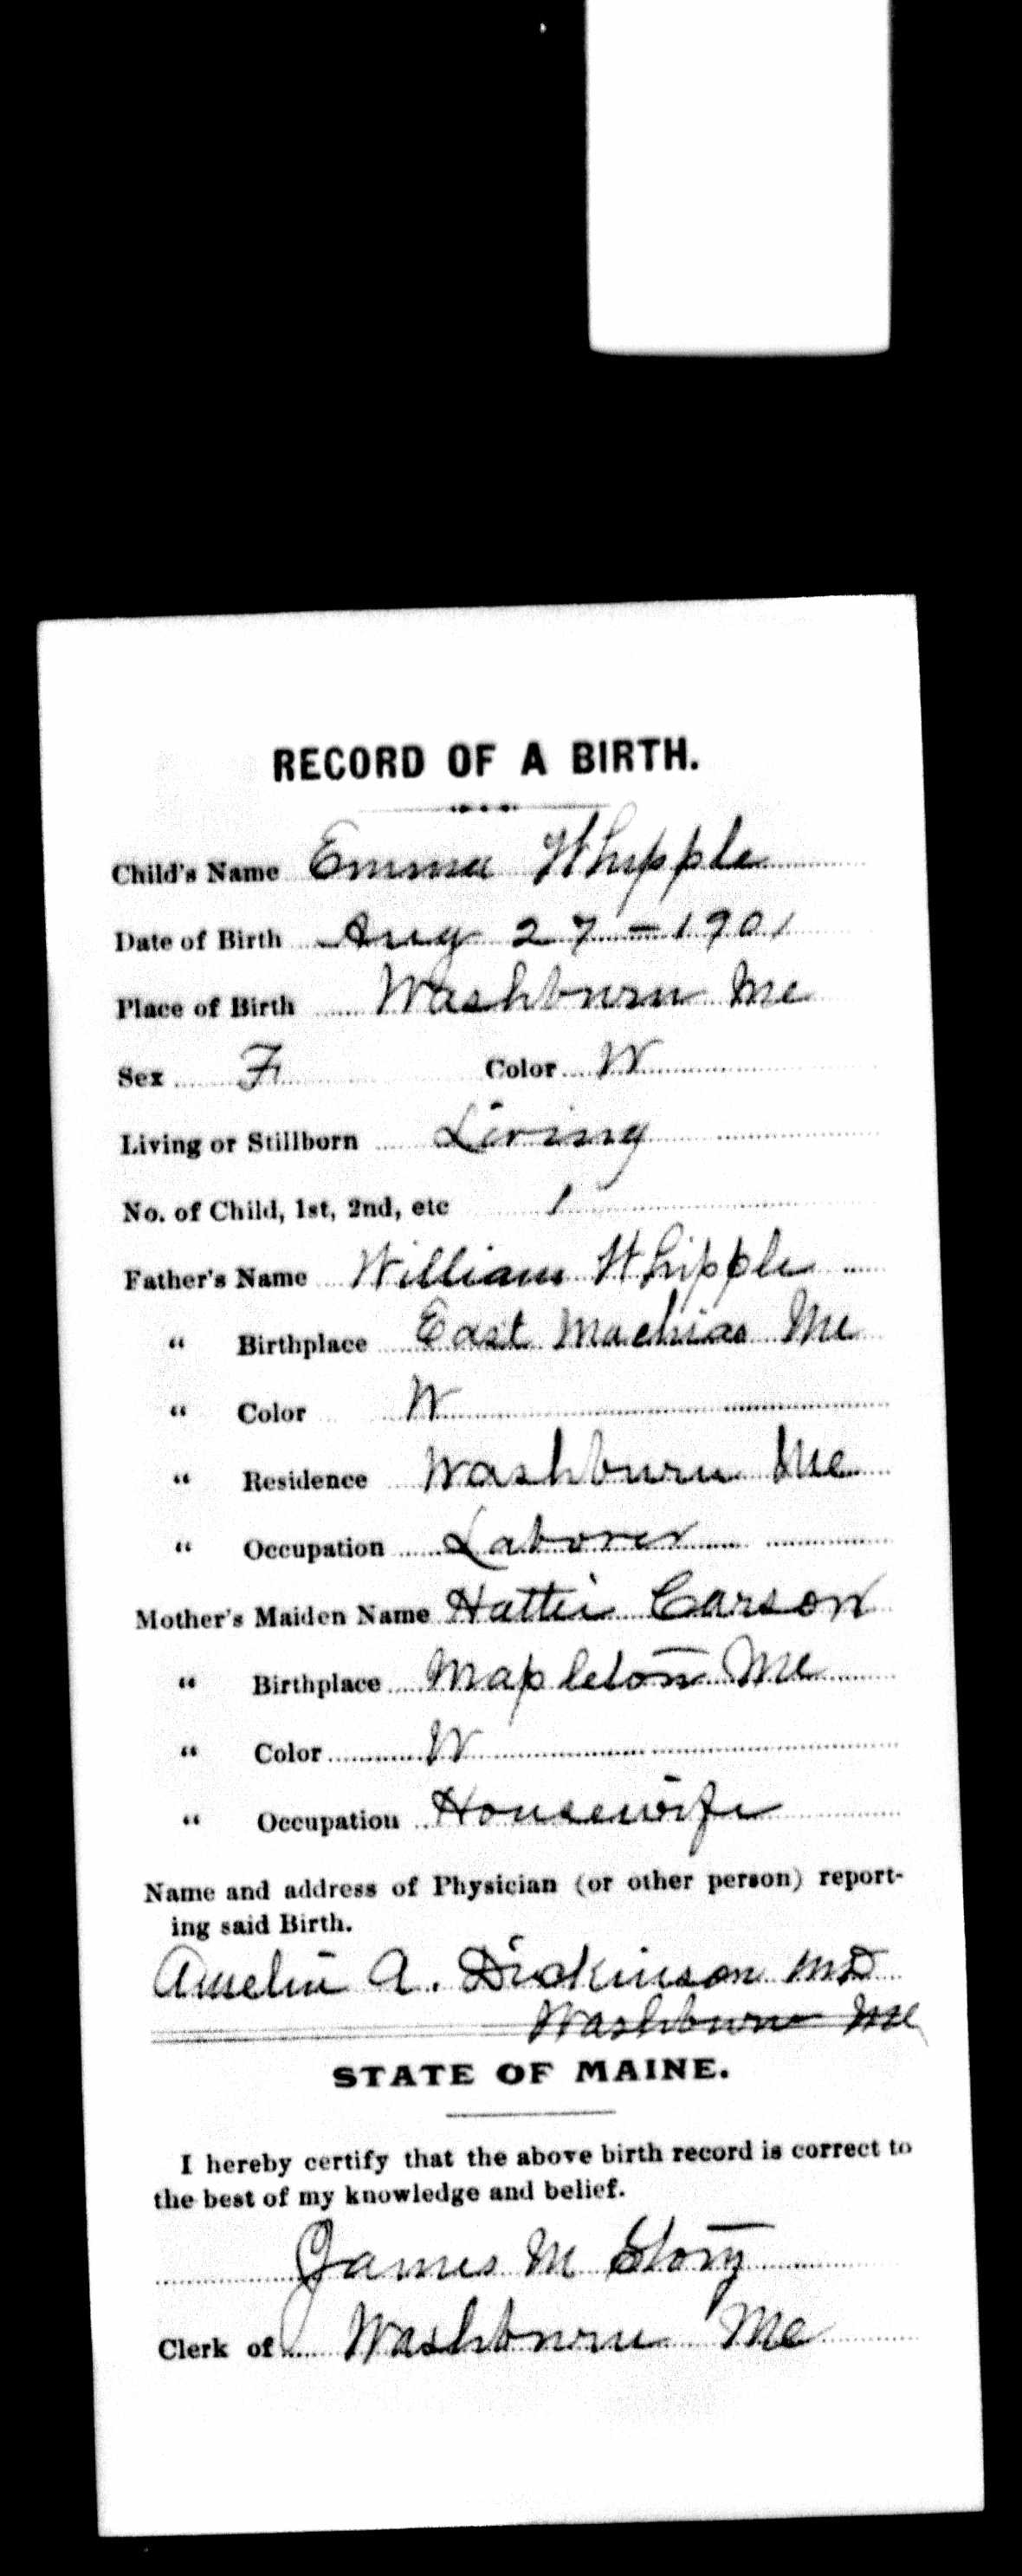 RECORD OF A BIRTH.
Child's Name Emma Whipple
Date of Birth Aug 27 - 1901
Place of Birth Washburn Me
Sex F Color W
Living or Stillborn Living
No. of Child, 1st, 2nd, etc 1
Father's Name William Whipple
" Birthplace East Machias Me
" Color W
" Residence Washburn Me
" Occupation Laborer
Mother's Maiden Name Hattie Carson
" Birthplace Mapleton Me
" Color W
" Occupation Housewife
Name and address of Physician (or other person) report-
ing said Birth.
Amelia A. Dickinson MD
Washburn Me
STATE OF MAINE.
I hereby certify that the above birth record is correct to
the best of my knowledge and belief.
James M Story
Clerk of Washburn Me